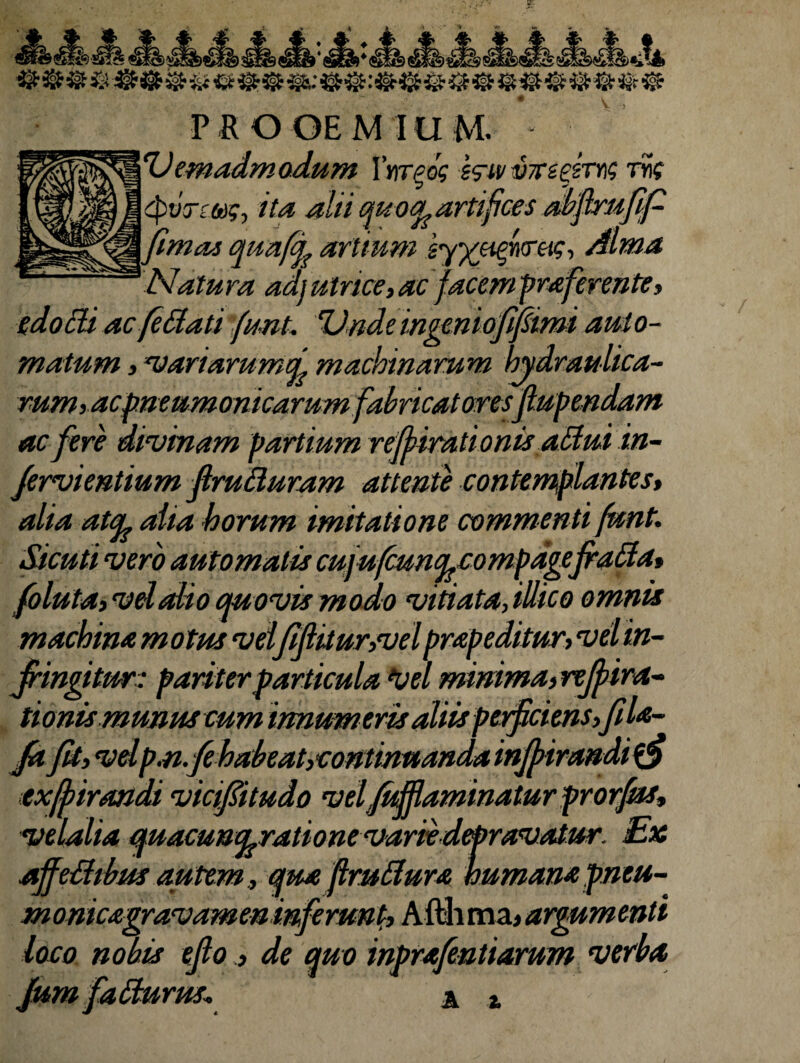 PROOEMIUM.
QUemadmodum Ἰητρός ἐστιν ὑπερέτης τῆς
φύσεως, ita alii quoq; artifices abſtruſiſ-
ſimas quaſq; artium ἐγχειρήσεις, Alma
Natura adjutrice, ac facem præferente,
edocti ac ſectati ſunt. Unde ingenioſiſſimi auto-
matum, variarumq; machinarum hydraulica-
rum, ac pneumonicarum fabricatores ſtupendam
ac fere divinam partium reſpirationis actui in-
ſervientium ſtructuram attentè contemplantes,
alia atq; alia horum imitatione commenti ſunt.
Sicuti verò automatis cujuſcunq; compage fracta,
ſoluta, vel alio quovis modo vitiata, illico omnis
machinæ motus vel ſiſtitur, vel præpeditur, vel in-
fringitur: pariter particula vel minima, reſpira-
tionis munus cum innumeris aliis perficiens, ſi læ-
ſa ſit, vel p.n. ſe habeat, continuanda inſpirandi &
exſpirandi viciſſitudo vel ſufflaminatur prorſus,
vel alia quacunq; ratione variè depravatur. Ex
affectibus autem, quæ ſtructuræ humanæ pneu-
monicæ gravamen inferunt, Aſthma, argumenti
loco nobis eſto, de quo inpræſentiarum verba
ſum facturus.
A 2